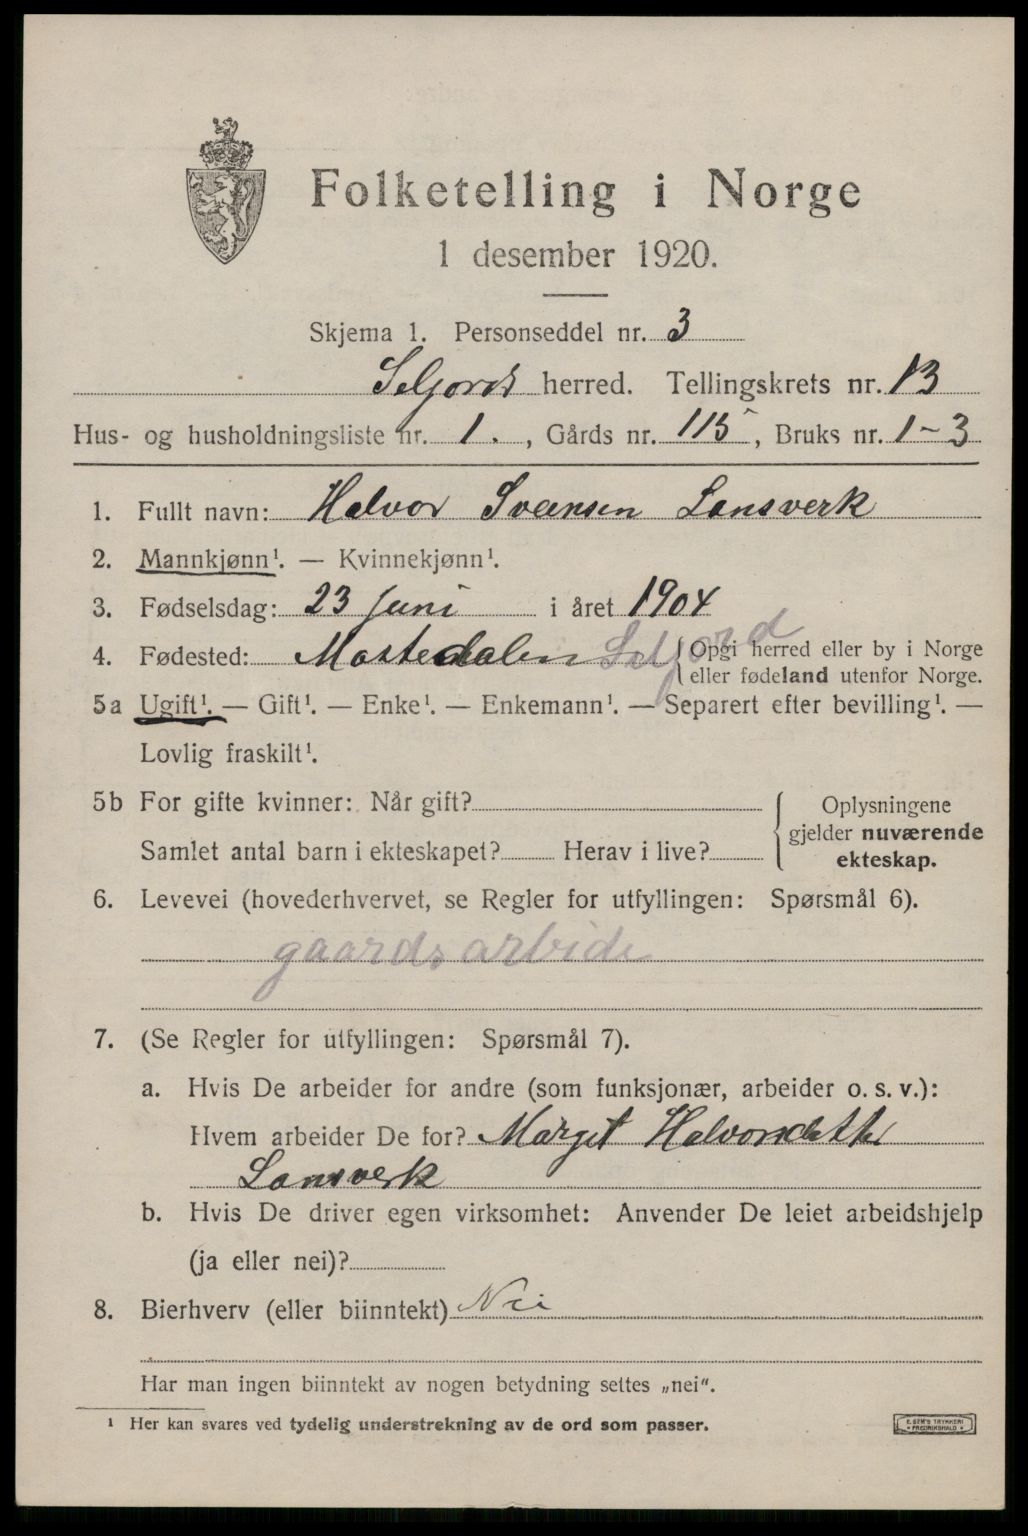 Folketelling i Norge
1 desember 1920.
Skjema 1. Personseddel nr. 3
Seljords herred. Tellingskrets nr. 13
Hus- og husholdningsliste nr. 1. , Gårds nr. 115 , Bruks nr. 1-3
1. Fullt navn: Halvor Sveinsen Lonsverk
2. Mannkjønn¹. — Kvinnekjønn¹.
3. Fødselsdag: 23 juni i året 1904
4. Fødested: Mostedalen Seljord Opgi herred eller by i Norge
eller fødeland utenfor Norge.
5a Ugift¹. — Gift¹. — Enke¹. — Enkemann¹. — Separert efter bevilling¹. —
Lovlig fraskilt¹.
5b For gifte kvinner: Når gift?
Samlet antal barn i ekteskapet? Herav i live?
Oplysningene
gjelder nuværende
ekteskap.
6. Levevei (hovederhvervet, se Regler for utfyllingen: Spørsmål 6).
gaardsarbide
7. (Se Regler for utfyllingen: Spørsmål 7).
a. Hvis De arbeider for andre (som funksjonær, arbeider o. s. v.):
Hvem arbeider De for? Margit Halvorsdatter
Lonsverk
b. Hvis De driver egen virksomhet: Anvender De leiet arbeidshjelp
(ja eller nei)?
8. Bierhverv (eller biinntekt) Nei
Har man ingen biinntekt av nogen betydning settes „nei".
¹ Her kan svares ved tydelig understrekning av de ord som passer.
E. SEM'S TRYKKERI
FREDRIKSHALD